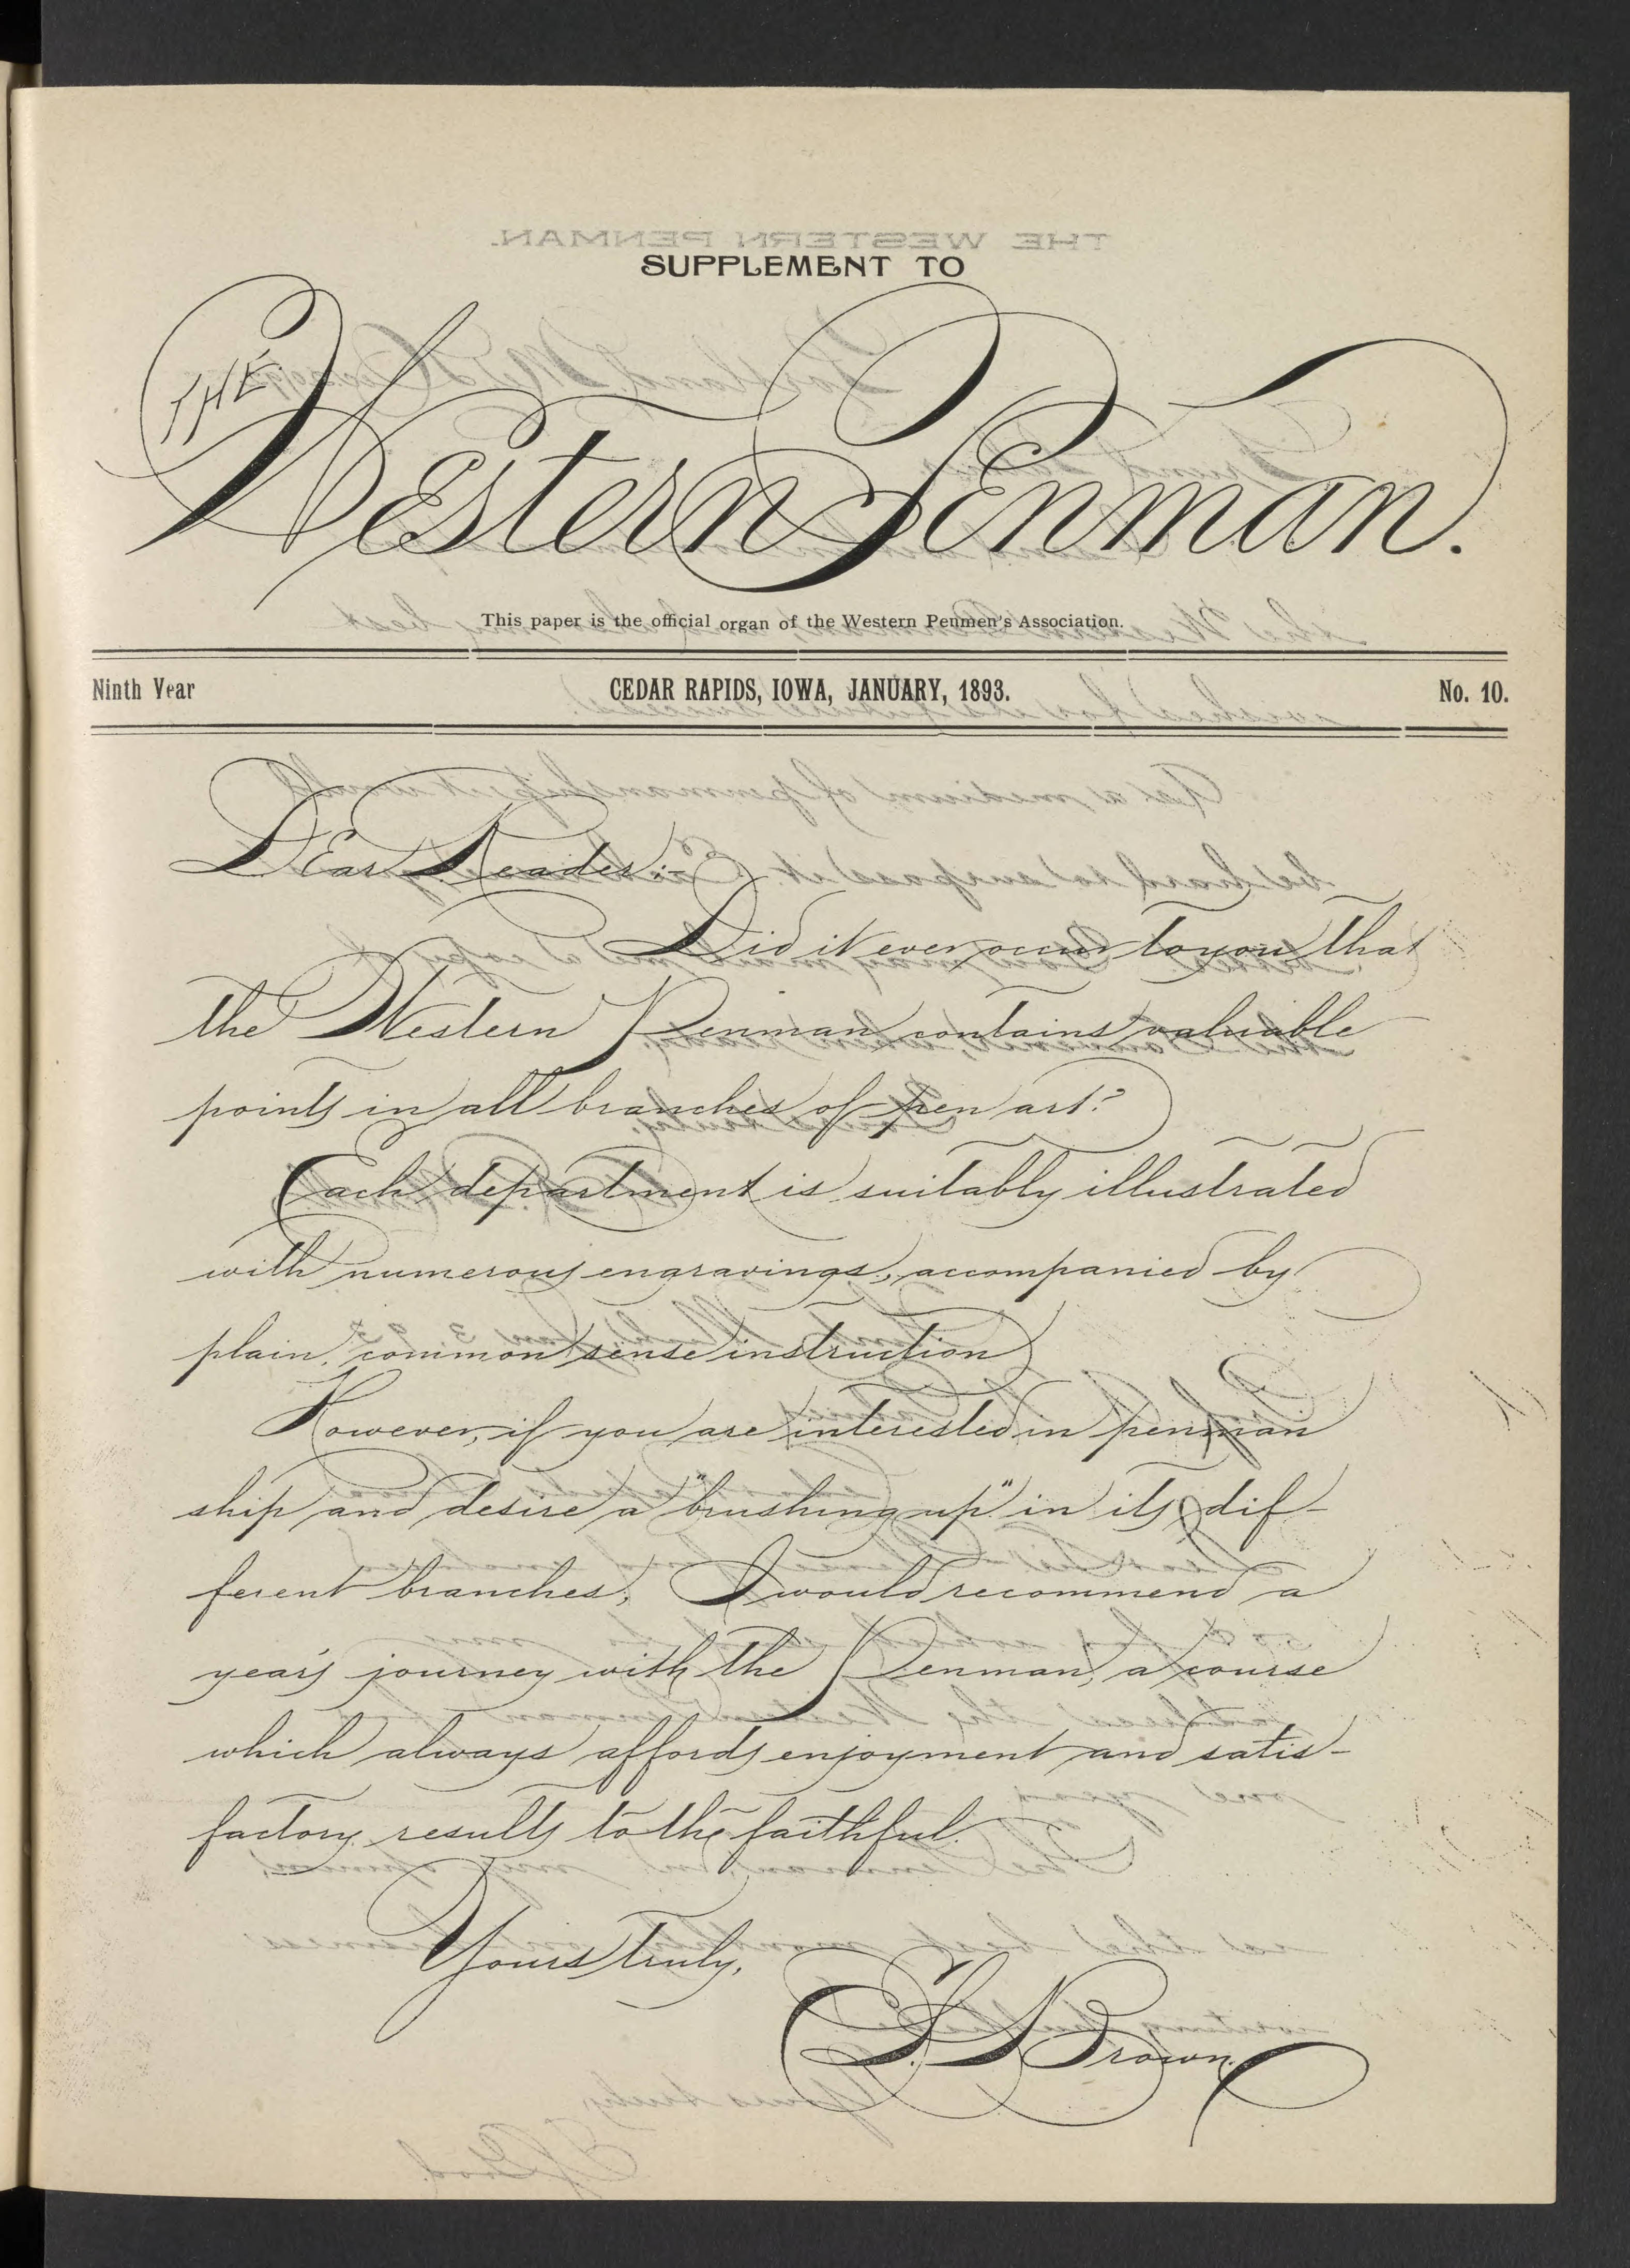 SUPPLEMENT TO
THE
Western Penman.
This paper is the official organ of the Western Penmen's Association.
Ninth Year CEDAR RAPIDS, IOWA, JANUARY, 1893. No. 10.
Dear Reader:-
Did it ever occur to you that
the Western Penman contains valuable
points in all branches of pen art?
Each department is suitably illustrated
with numerous engravings, accompanied by
plain, common sense instruction
However, if you are interested in penman
ship and desire a "brushing up" in its dif-
ferent branches, I would recommend a
year's journey with the Penman, a course
which always affords enjoyment and satis-
factory results to the faithful.
Yours truly,
Brown.